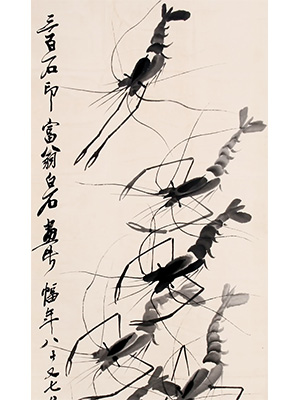 三百石印富翁白石畫第幅年八十又七